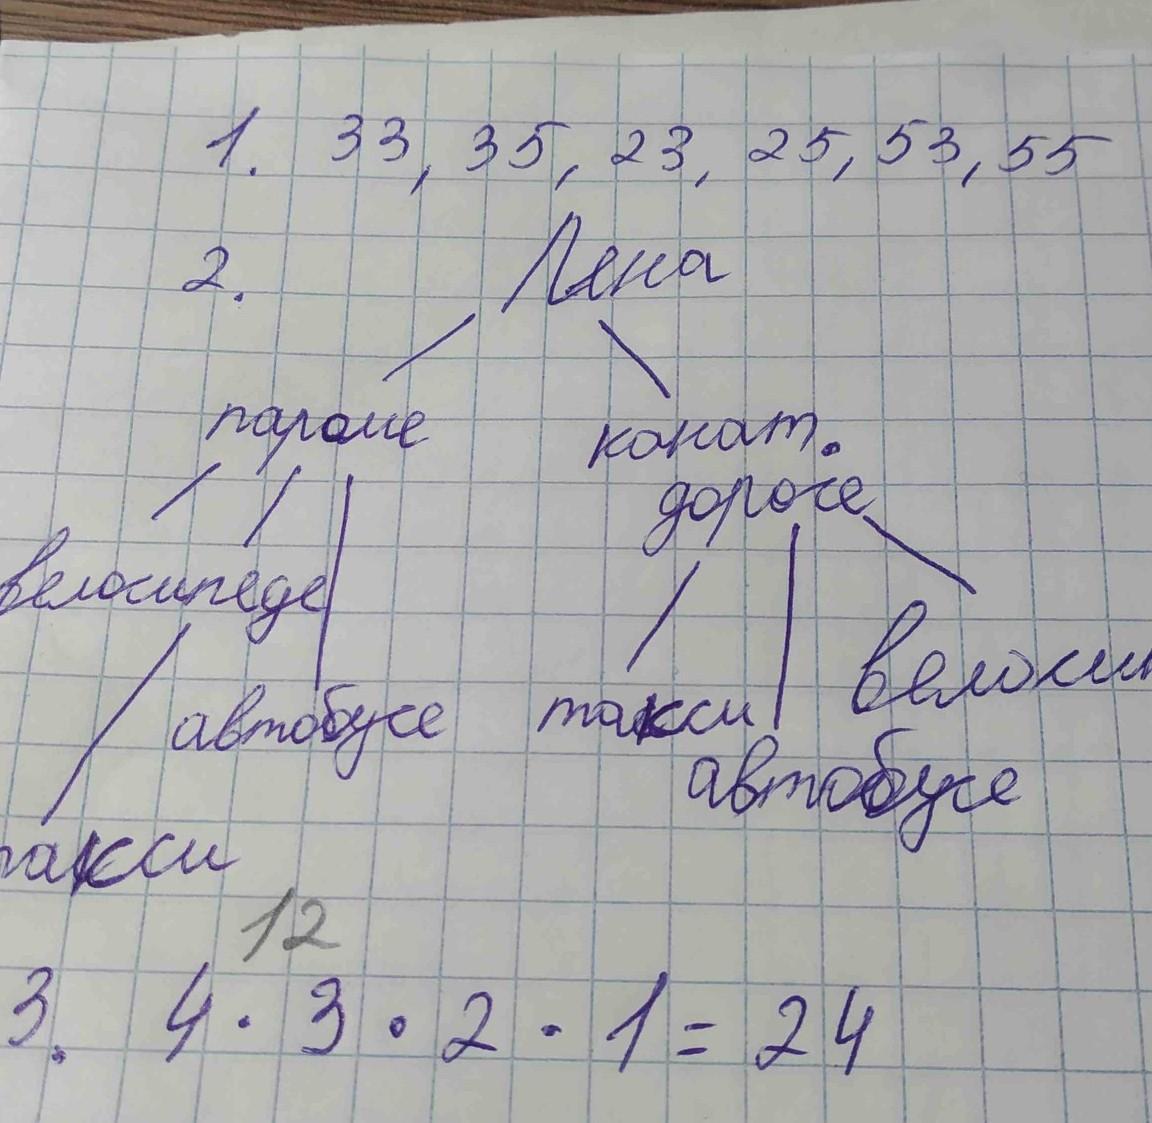 1. 33, 35, 23, 25, 53, 55
2. Лена
пароме
канат.
дороге
велосипеде
велосип
автобусе
такси
автобусе
такси
12
3. 4 · 3 · 2 · 1 = 24